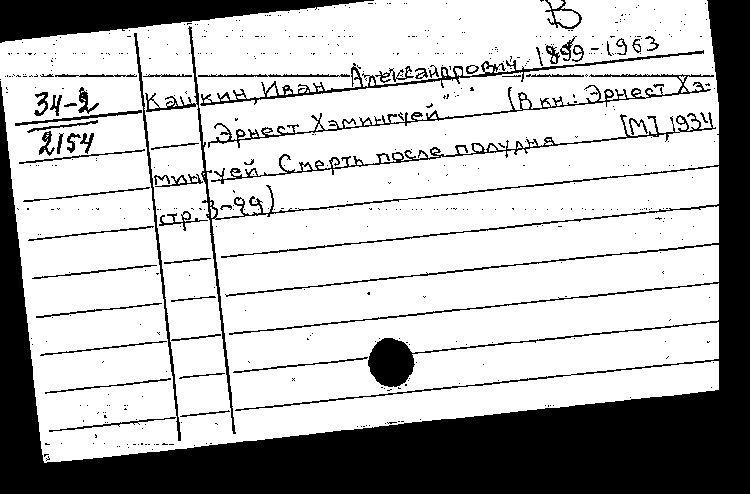 В
34-2
2154
Кашкин, Иван Александрович, 1899-1963
„Эрнест Хэмингуей" (В кн.: Эрнест Хэ-
мингуей. Смерть после полудня [М], 1934
стр. 3-99)